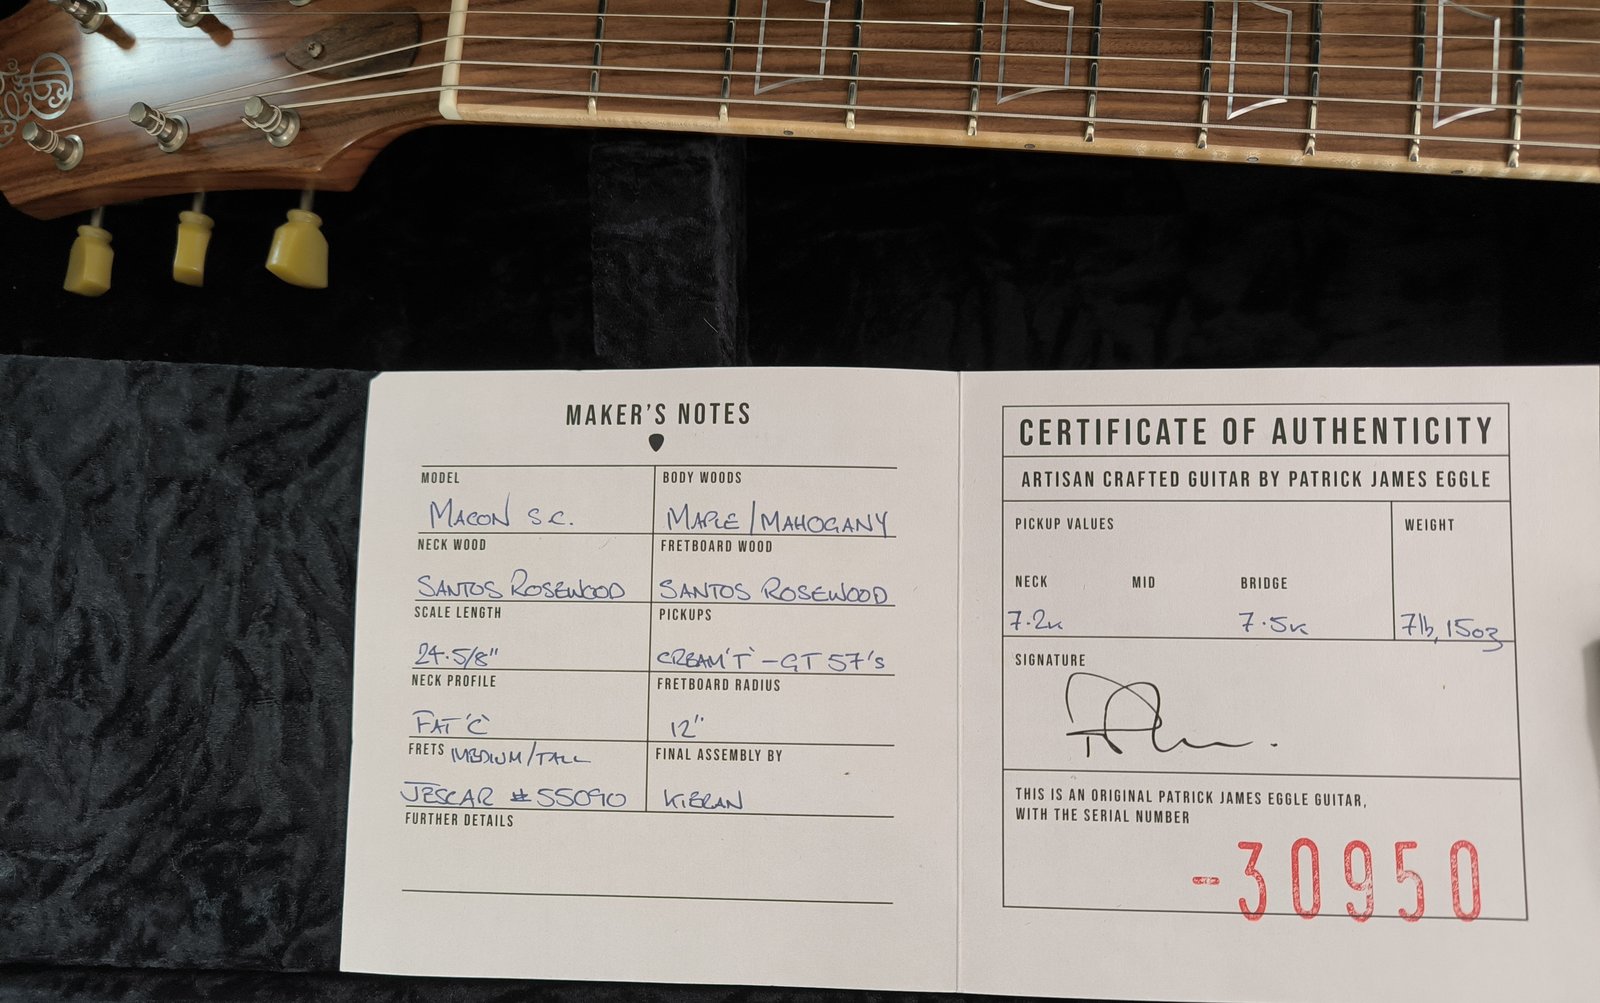 MAKER'S NOTES
MODEL
MACON S.C.
BODY WOODS
MAPLE/MAHOGANY
NECK WOOD
SANTOS ROSEWOOD
FRETBOARD WOOD
SANTOS ROSEWOOD
SCALE LENGTH
24.5/8"
PICKUPS
CREAM 'T' - GT 57's
NECK PROFILE
FAT 'C'
FRETBOARD RADIUS
12"
FRETS MEDIUM/TALL
JESCAR #55090
FINAL ASSEMBLY BY
KIERAN
FURTHER DETAILS
CERTIFICATE OF AUTHENTICITY
ARTISAN CRAFTED GUITAR BY PATRICK JAMES EGGLE
PICKUP VALUES
WEIGHT
NECK MID BRIDGE
7.2K 7.5K 7lb, 15oz
SIGNATURE
THIS IS AN ORIGINAL PATRICK JAMES EGGLE GUITAR,
WITH THE SERIAL NUMBER
-30950